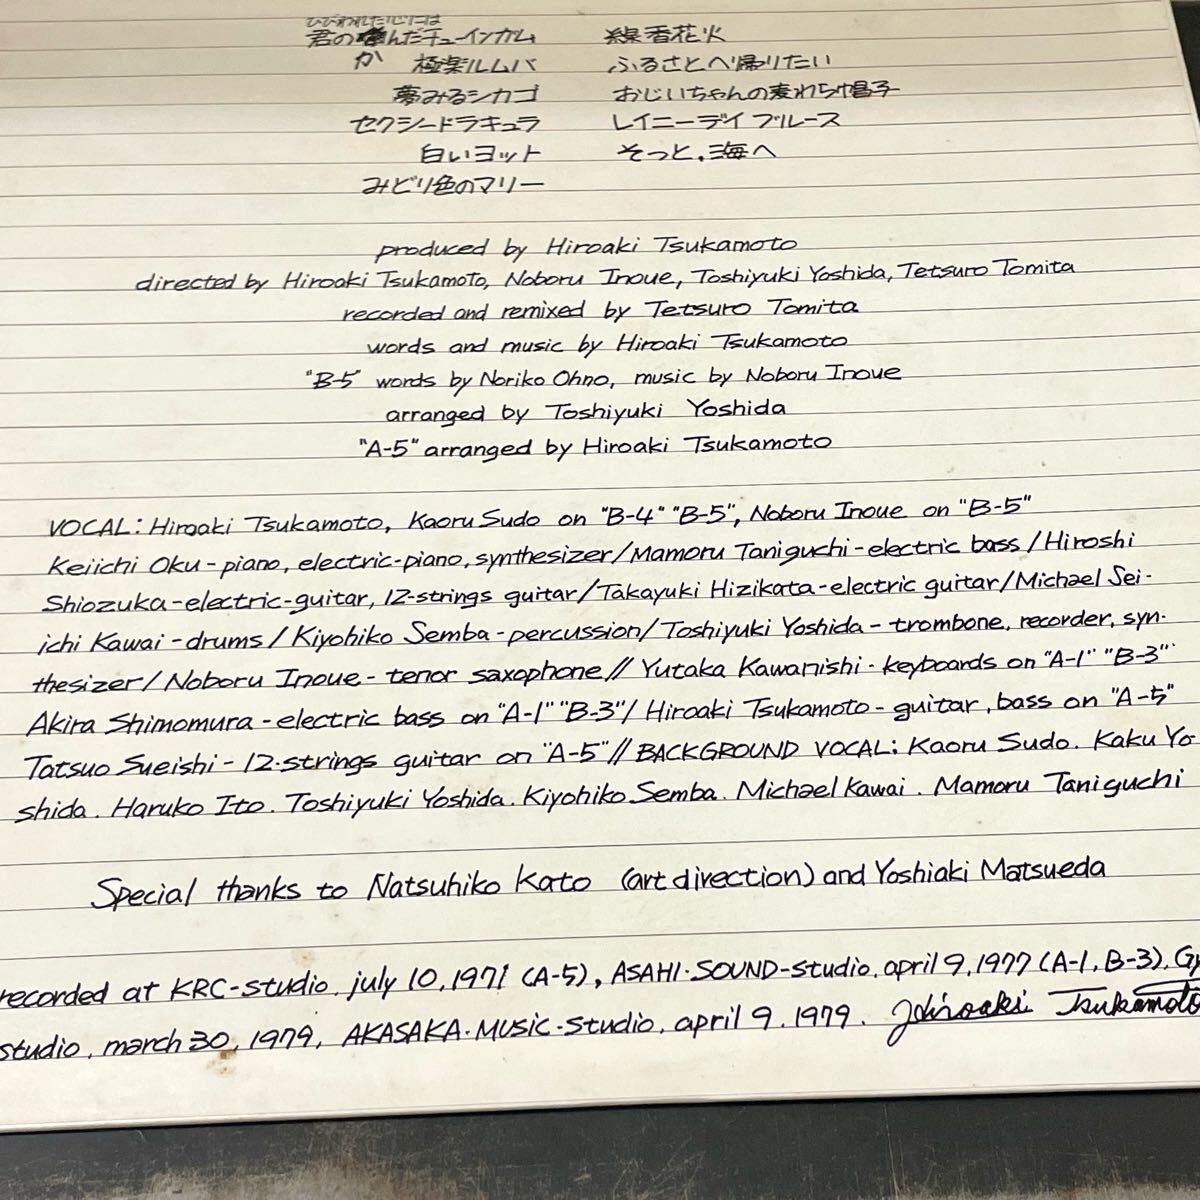 ひびわれた心には
君のかんだチューインガム 線香花火
極楽ルムバ ふるさとへ帰りたい
夢みるシカゴ おじいちゃんの麦わら帽子
セクシードラキュラ レイニーデイブルース
白いヨット そっと,海へ
みどり色のマリー
produced by Hiroaki Tsukamoto
directed by Hiroaki Tsukamoto, Noboru Inoue, Toshiyuki Yoshida, Tetsuro Tomita
recorded and remixed by Tetsuro Tomita
words and music by Hiroaki Tsukamoto
"B-5" words by Noriko Ohno, music by Noboru Inoue
arranged by Toshiyuki Yoshida
"A-5" arranged by Hiroaki Tsukamoto
VOCAL: Hiroaki Tsukamoto, Kaoru Sudo on "B-4" "B-5", Noboru Inoue on "B-5"
Keiichi Oku-piano, electric-piano, synthesizer/Mamoru Taniguchi-electric bass/Hiroshi
Shiozuka-electric-guitar, 12-strings guitar/Takayuki Hizikata-electric guitar/Michael Sei-
ichi Kawai-drums/Kiyohiko Semba-percussion/Toshiyuki Yoshida-trombone, recorder, syn-
thesizer/Noboru Inoue-tenor saxophone//Yutaka Kawanishi-keyboards on "A-1" "B-3"
Akira Shimomura-electric bass on "A-1" "B-3"/Hiroaki Tsukamoto-guitar, bass on "A-5"
Tatsuo Sueishi-12-strings guitar on "A-5"//BACKGROUND VOCAL: Kaoru Sudo. Kaku Yo
shida. Haruko Ito. Toshiyuki Yoshida. Kiyohiko Semba. Michael Kawai. Mamoru Taniguchi
Special thanks to Natsuhiko Kato (art direction) and Yoshiaki Matsueda
recorded at KRC-studio, july 10, 1971 (A-5), ASAHI-SOUND-studio, april 9, 1977 (A-1, B-3),
studio, march 30, 1979, AKASAKA-MUSIC-studio, april 9. 1979. Hiroaki Tsukamoto